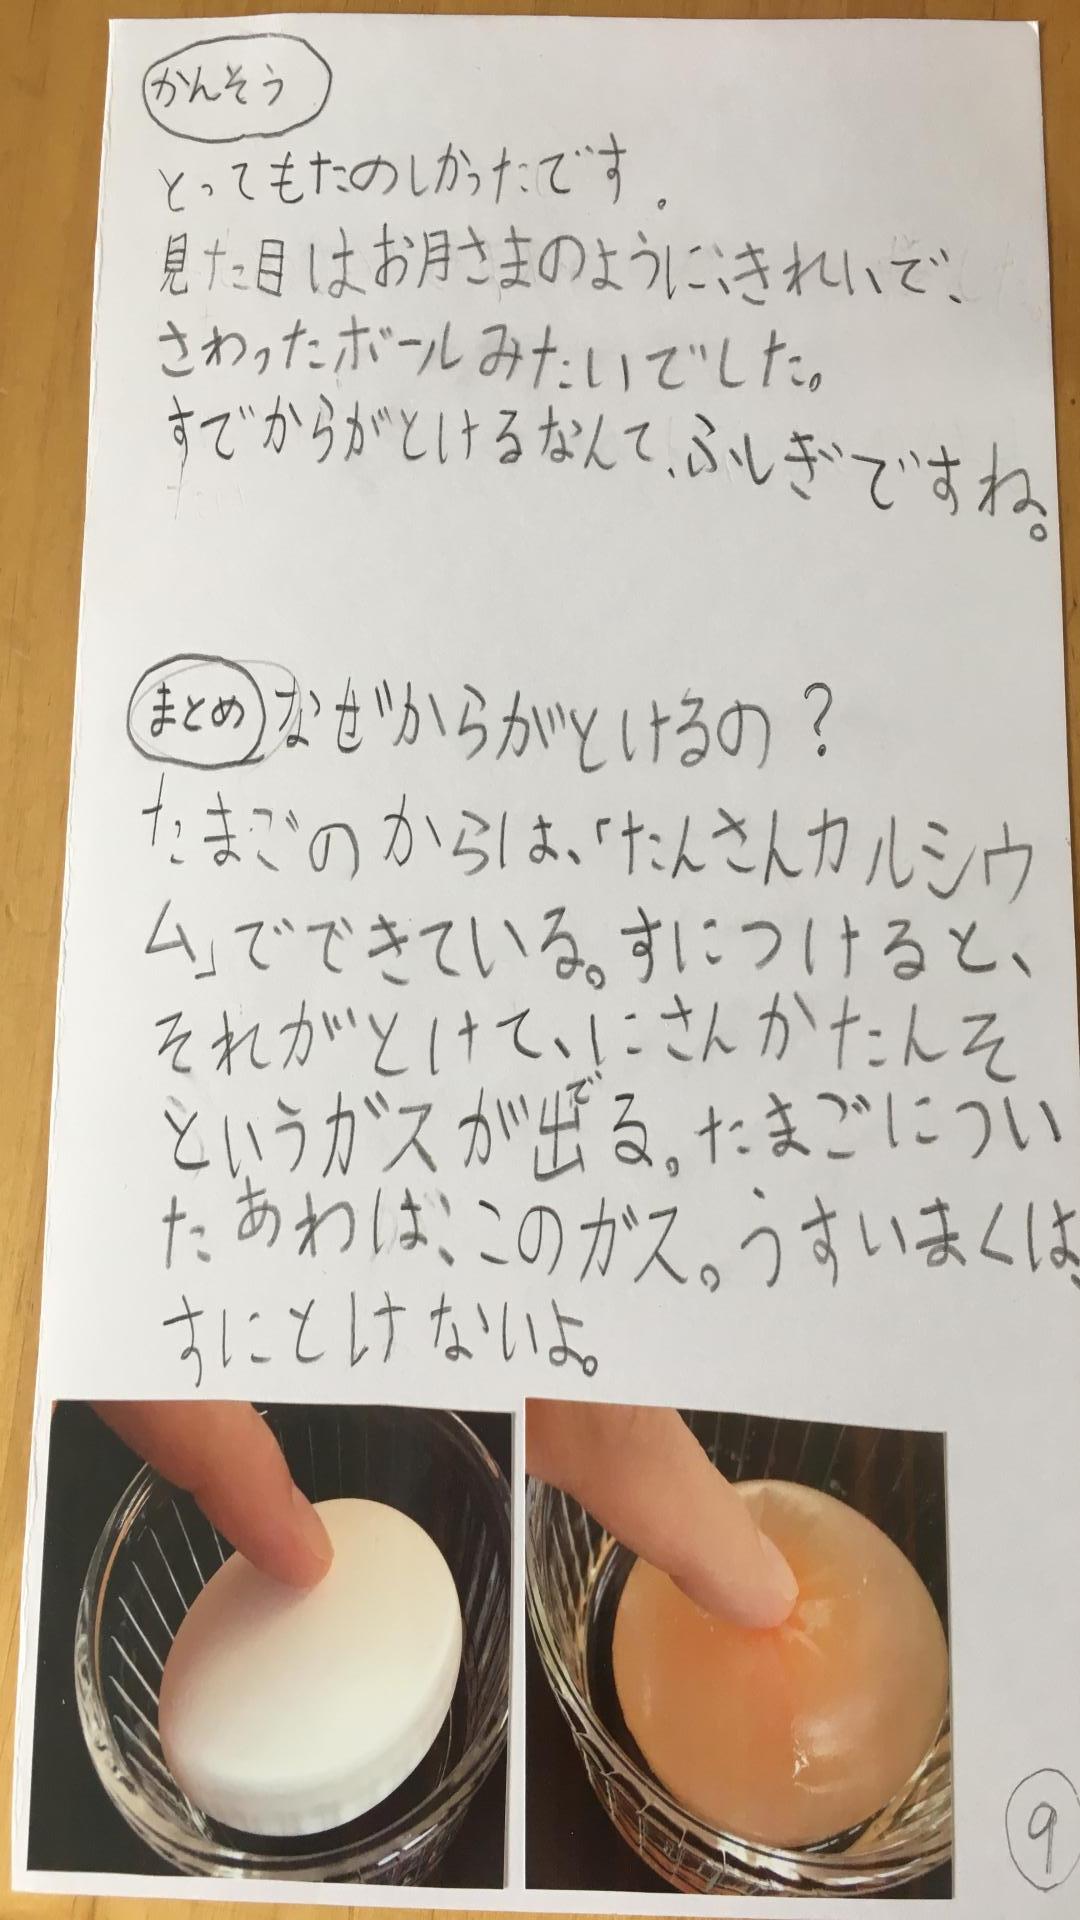 かんそう
とってもたのしかったです。
見た目はお月さまのように、きれいで、
さわったボールみたいでした。
すでからがとけるなんて、ふしぎですね。
まとめ なぜからがとけるの?
たまごのからは、「たんさんカルシウ
ム」でできている。すにつけると、
それがとけて、にさんかたんそ
というガスが出でる。たまごについ
たあわは、このガス。うすいまくは、
すにとけないよ。
9